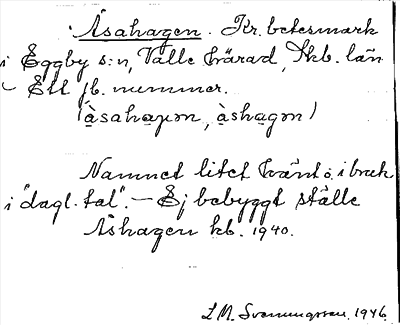 Åsahagen. Kr. betesmark
i Eggby s:n, Valle härad, Skb. län
- Ett jb. nummer.
(àsahaɡən, àshaɡən)
Namnet litet känt o. i bruk
i "dagl. tal". - Ej bebyggt ställe
Åshagen kb. 1940.
L.M. Svenungsson. 1946.